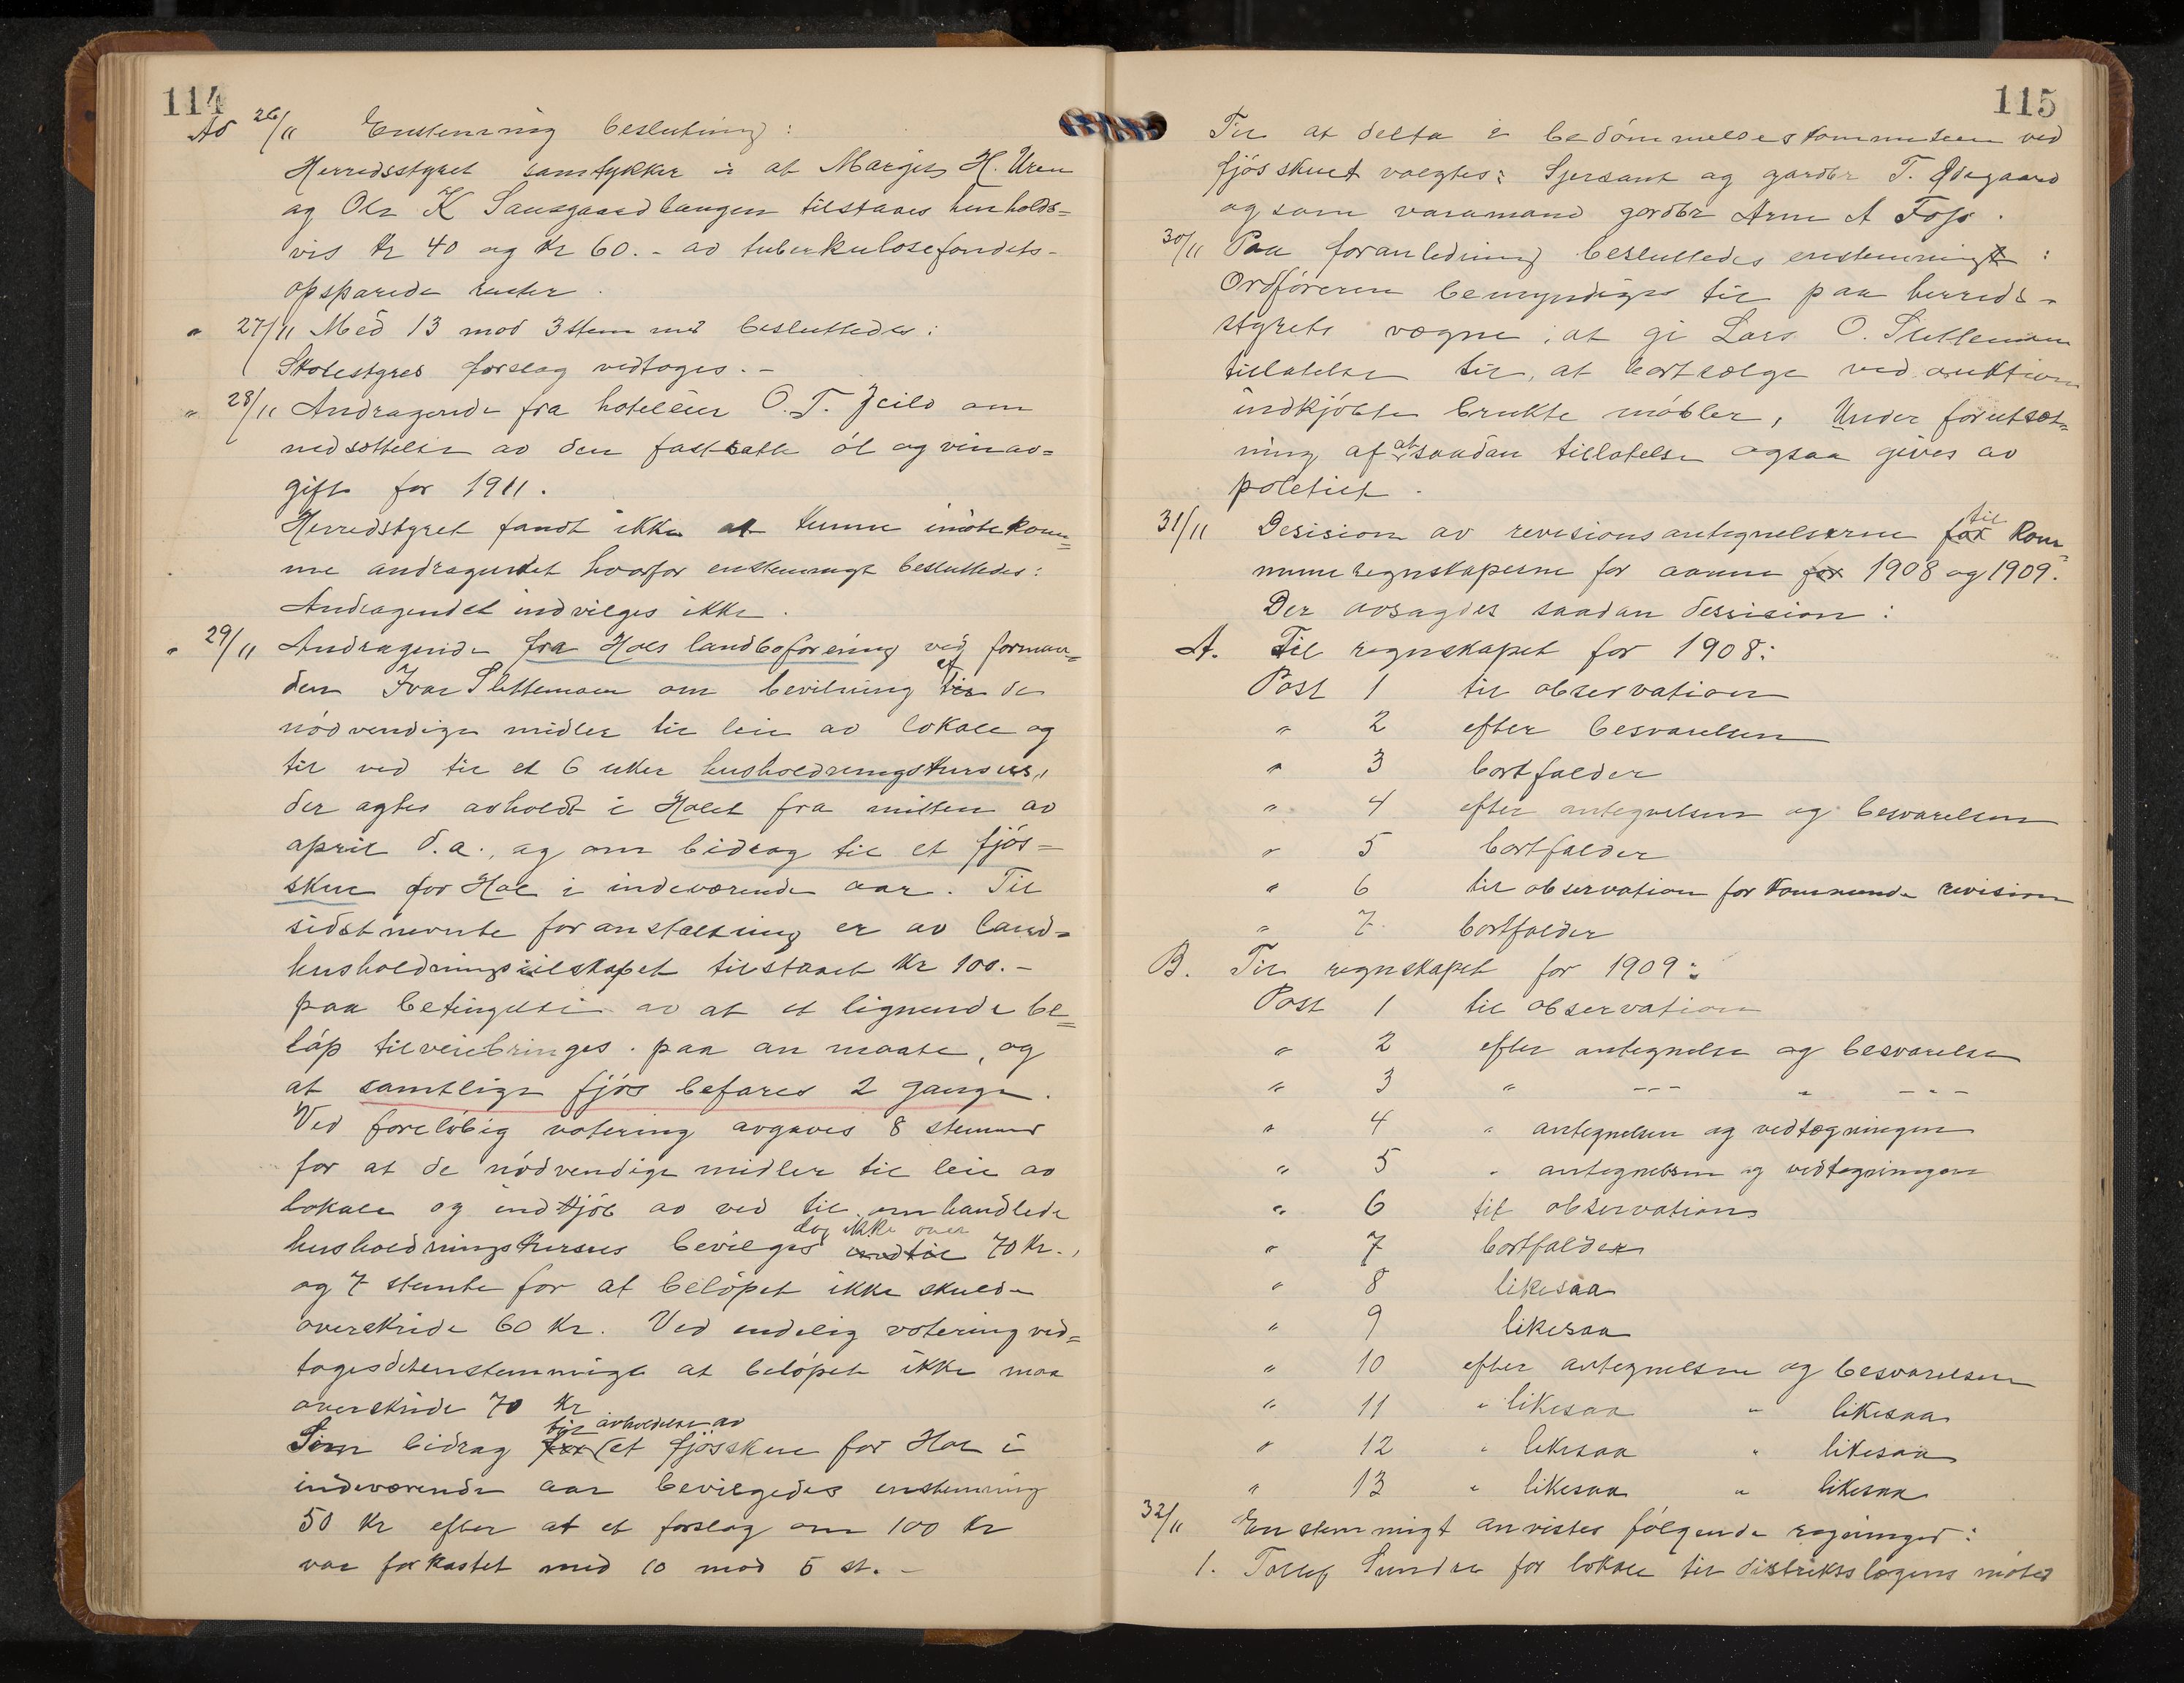 114
Ad 26/11 Enstemmig beslutning:
Herredsstyret samtykker i at Margit H. Uren
og Ole K Sausgaardhaugen tilstaaes henholds=
vis kr 40 og kr 60.- av tuberkulosefondets-
opsparede renter.
" 27/11 Med 13 mod 3 stemmer besluttedes:
Skolestyres forslag vedtages.-
" 28/11 Andragende fra hoteleier O. T. Jeilo om
nedsættelse av den fastsatte öl og vinav=
gift for 1911.
Herredstyret fandt ikke at kunne imötekom=
me andragendet hvorfor enstemmigt besluttedes:
Andragendet indvilges ikke.
" 29/11 Andragende fra Hols landboforening ved forman=
den Ivar Slettemoen om bevilning af de
nödvendige midler til leie av lokale og
til ved til et 6 uker husholdningskursus,
der agtes avholdt i Holet fra mitten av
april d.a., og om bidrag til et fjös=
skue for Hol i indeværende aar. Til
sidstnevnte foranstaltning er av land=
husholdningsselskapet tilstaaet kr 100.-
paa betingelse av at et lignende be=
löp tilveiebringes paa an maate, og
at samtlige fjös befares 2 gange.
Ved forelöbig votering avgaves 8 stemmer
for at de nödvendige midler til leie av
lokale og indkjöb av ved til omhandlede
husholdningskursus bevilges indtil dog ikke over 70 kr.,
og 7 stemte for at belöpet ikke skulde
overskride 60 kr. Ved endelig votering ved=
toges det enstemmigt at belöpet ikke maa
overskride 70 kr
Som bidrag for til avholdelse av et fjösskue for Hol i
indeværende aar bevilgedes enstemmig
50 kr efter at et forslag om 100 kr
var forkastet med 10 mod 5 st.-
115
Til at delta i bedömmelseskommiteen ved
fjösskuet valgtes: Sjersant og gardbr T. Ødegaard
og som varamand gardbr Arne A Foss.
30/11 Paa foranledning besluttedes enstemmigt:
Ordföreren bemyndiges til paa herreds-
styrets vægne, at gi Lars O. Slettemoen
tillatelse til, at bortsælge ved auktion
indkjöbte brukte möbler, Under forutsæt=
ning af at saadan tillatelse ogsaa gives av
politiet.
31/11 Desision av revisionsantegnelserne for til kom=
muneregnskaperne for aarene for 1908 og 1909.
Der avsagdes saadan desision:
A. Til regnskapet for 1908:
Post 1 til observation
" 2 efter besvarelsen
" 3 bortfalder
" 4 efter antegnelsen og besvarelsen
" 5 bortfalder
" 6 til observation for kommende revision
" 7 bortfalder
B. Til regnskapet for 1909:
Post 1 til observation
" 2 efter antegnelse og besvarelse
" 3 " --- " ---
" 4 " antegnelsen og vedtægningen
" 5 " antegnelsen og vedtegningen
" 6 til observation
" 7 bortfalder
" 8 likesaa
" 9 likesaa
" 10 efter antegnelsen og besvarelsen
" 11 " likesaa " likesaa
" 12 " likesaa " likesaa
" 13 " likesaa " likesaa
32/11 Enstemmigt anvistes fölgende regninger:
1. Tollef Sundre for lokale til distriktslægens möter